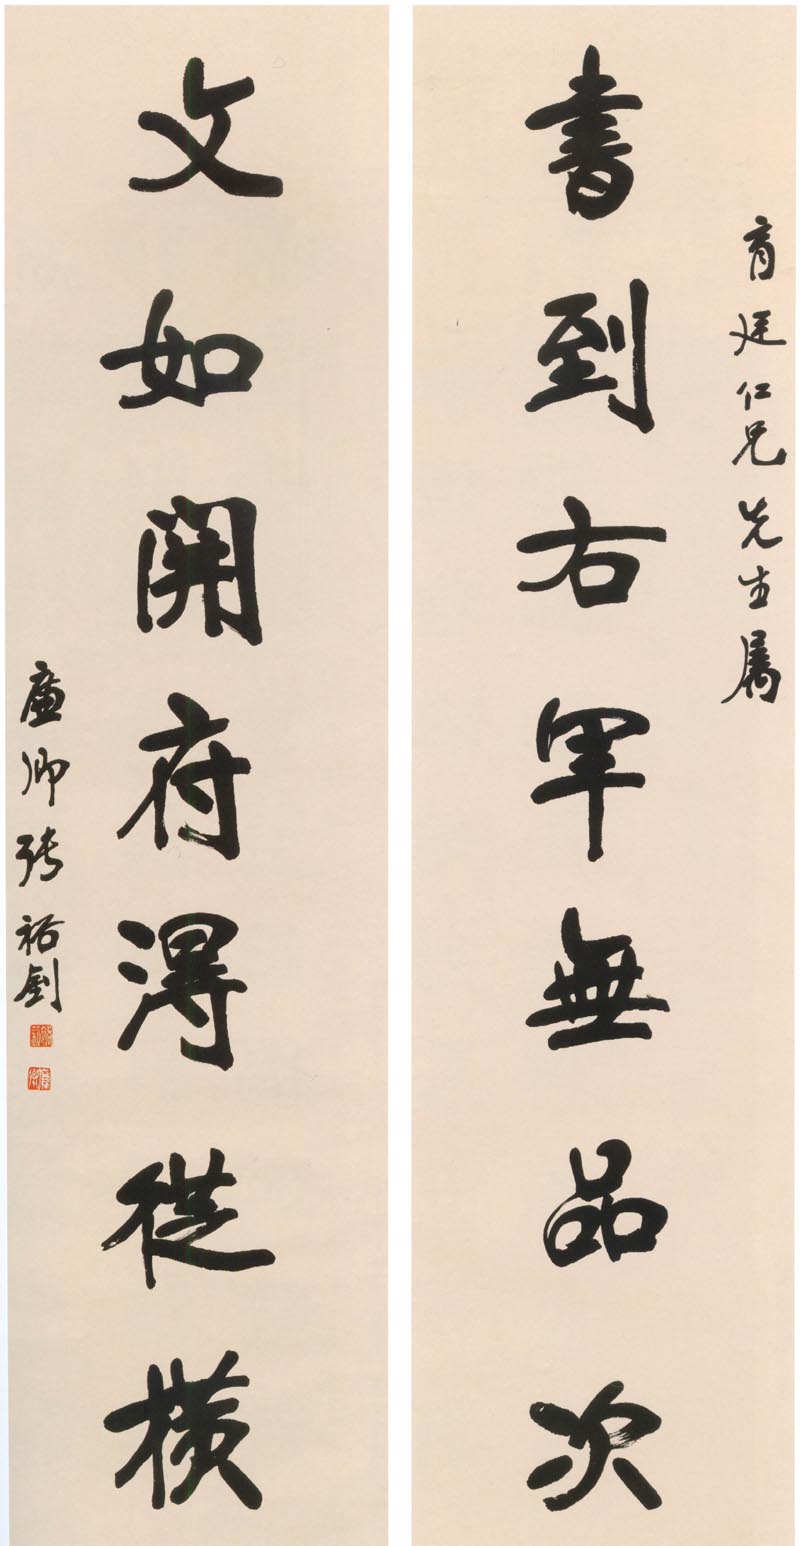 育廷仁兄先生屬
書到右軍無品次
文如開府淂從橫
廉卿張裕釗